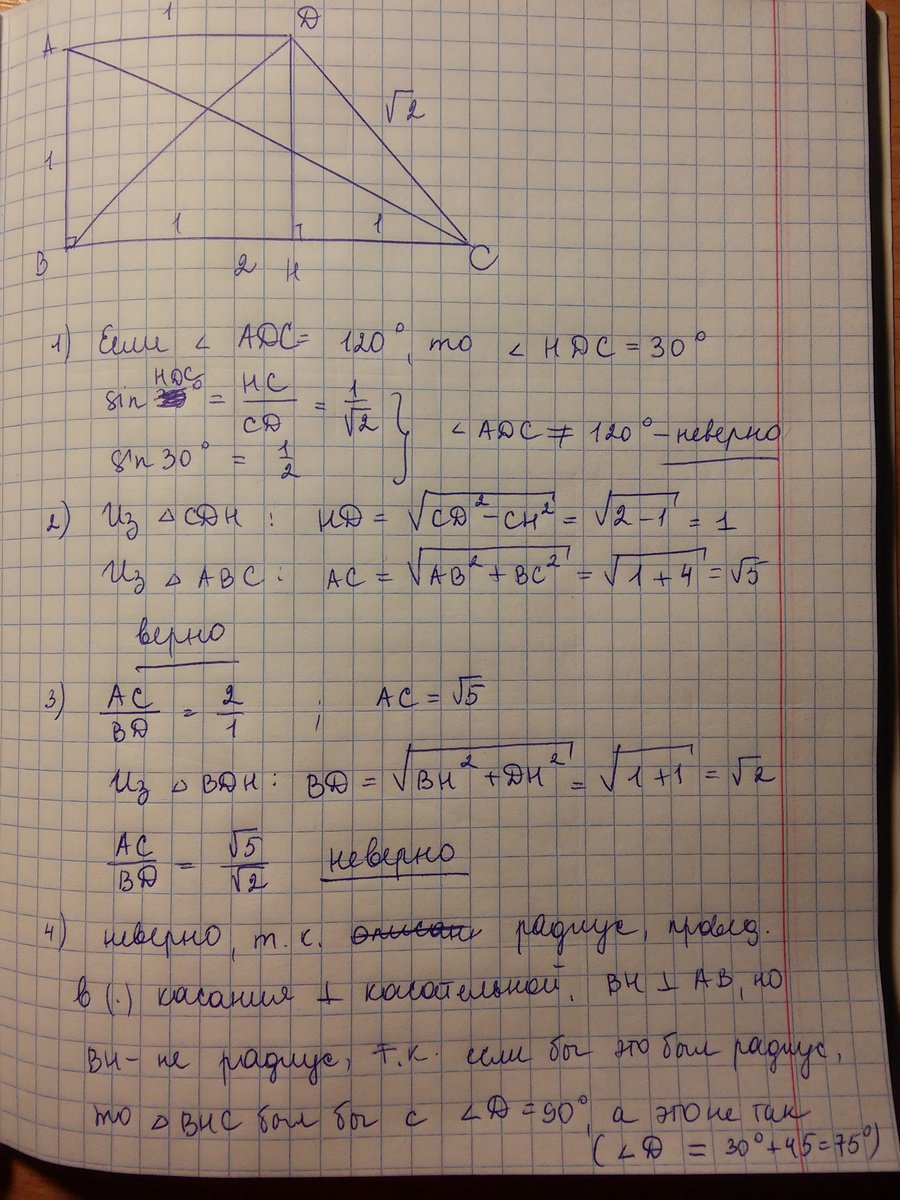 1
A D
√2
1
1 1
B 2 H C
1) Если ∠ ADC = 120°, то ∠ HDC = 30°
sin HDC = HC/CD = 1/√2
∠ ADC ≠ 120° – неверно
sin 30° = 1/2
2) Из △CDH : HD = √(CD² – CH²) = √(2 – 1) = 1
Из △ ABC : AC = √(AB² + BC²) = √(1 + 4) = √5
верно
3) AC/BD = 2/1 ; AC = √5
Из △ BDH : BD = √(BH² + DH²) = √(1 + 1) = √2
AC/BD = √5/√2 неверно
4) неверно, т. к. радиус, провед.
в (·) касания ⊥ касательной. BH ⊥ AB, но
BH – не радиус, т.к. если бы это был радиус,
то △ BHC был бы с ∠D = 90°, а это не так
(∠D = 30° + 45 = 75°)